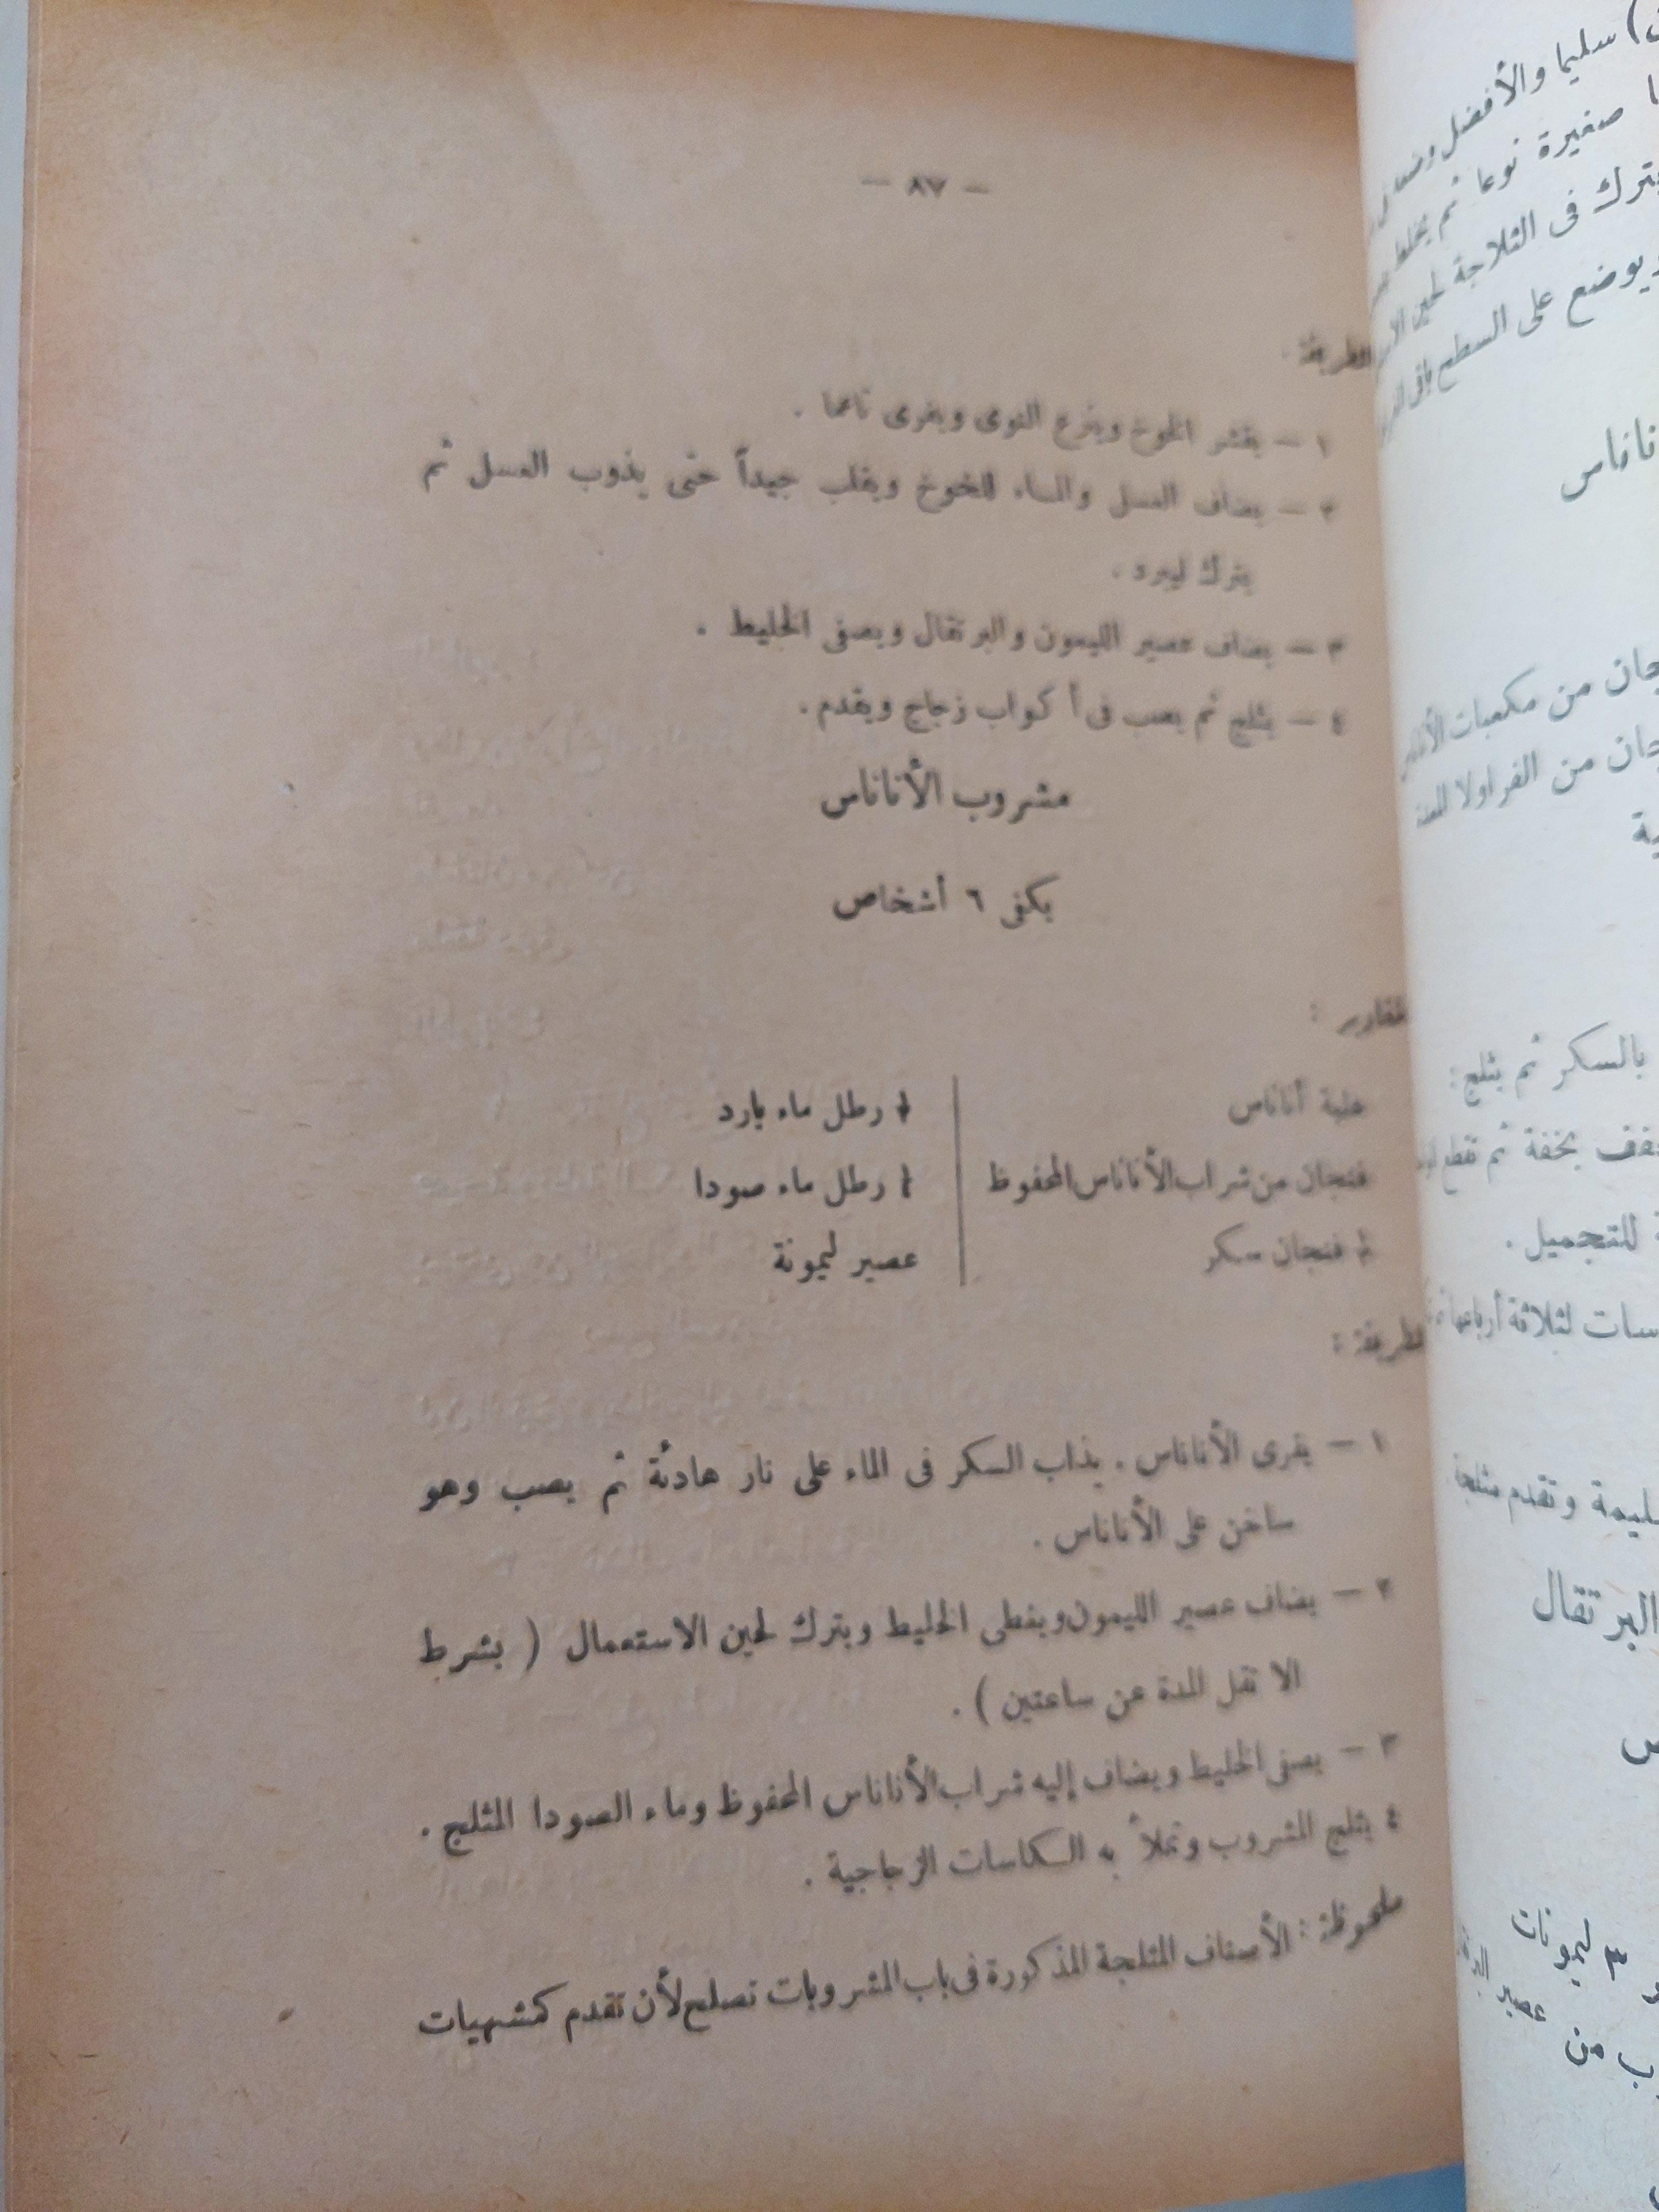 — ٨٧ —
الطريقة :
١ — يقشر الخوخ وينزع النوى ويفرى ناعما .
٢ — يضاف العسل والماء للخوخ ويقلب جيداً حتى يذوب العسل ثم
يترك ليبرد .
٣ — يضاف عصير الليمون والبرتقال ويصفى الخليط .
٤ — يثلج ثم يصب فى أكواب زجاج ويقدم .
مشروب الأناناس
يكفى ٦ أشخاص
المقادير :
علبة أناناس
فنجان من شراب الأناناس المحفوظ
فنجان سكر
رطل ماء بارد
رطل ماء صودا
عصير ليمونة
الطريقة :
١ — يفرى الأناناس . يذاب السكر فى الماء على نار هادئة ثم يصب وهو
ساخن على الأناناس .
٢ — يضاف عصير الليمون ويغطى الخليط ويترك لحين الاستعمال ( بشرط
الا تقل المدة عن ساعتين ) .
٣ — يصفى الخليط ويضاف إليه شراب الأناناس المحفوظ وماء الصودا المثلج .
٤ يثلج المشروب وتملأ به الكاسات الزجاجية .
ملحوظة : الأصناف المثلجة المذكورة فى باب المشروبات تصلح لأن تقدم كمشهيات
سليما والأفضل
صغيرة نوعا ثم يخلط
يترك فى الثلاجة لحين
ويوضع على السطح باقى
من مكعبات الأناناس
من الفراولا
بالسكر ثم يثلج :
بخفة ثم تقطع
للتجميل .
لثلاثة أرباعها
وتقدم مثلجة
البرتقال
٣ ليمونات
من عصير